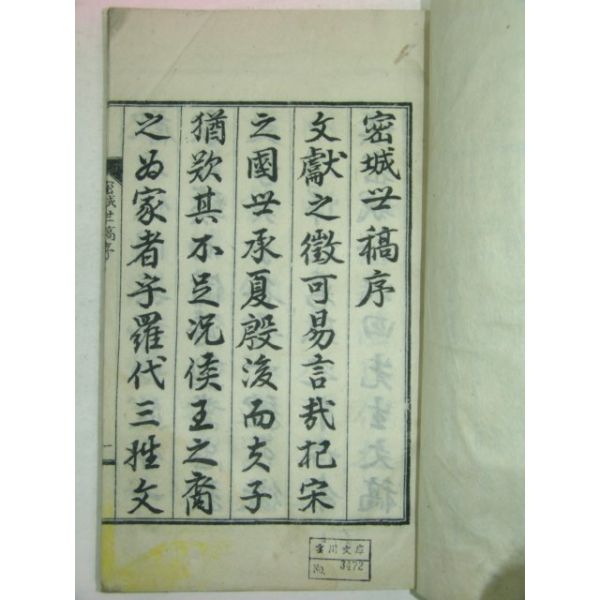 密城世稿序
文獻之徵可易言㢤杞宋
之國世承夏殷後而夫子
猶歎其不足况侯王之裔
之爲家者乎羅代三姓文
密城世稿序
一
雪川文庫
No. 3472